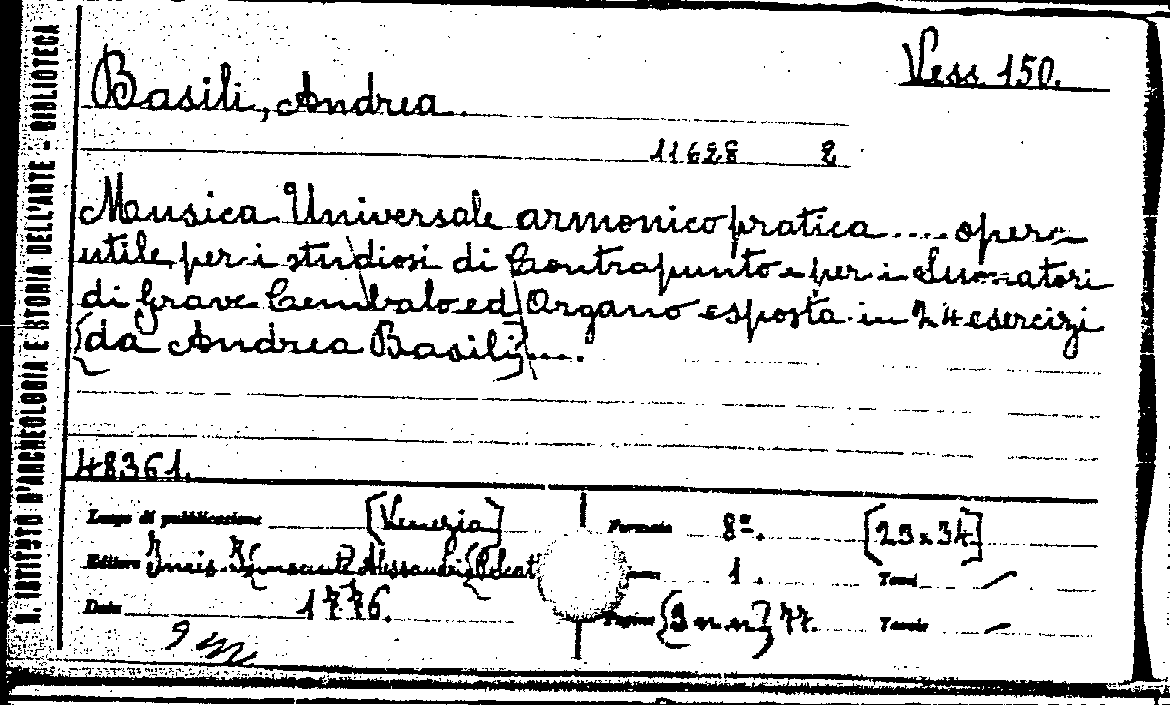 R. ISTITUTO D'ARCHEOLOGIA E STORIA DELL'ARTE - BIBLIOTECA
Vess 150.
Basili, Andrea.
11628 2
Musica Universale armonico pratica .... opera
utile per i studiosi di Contrapunto e per i Suonatori
di Grave Cembalo ed Organo esposta in 24 esercizi
[da Andrea Basili] ....
48361.
Luogo di pubblicazione [Venezia]
Formato 8º. [23x34]
Editore Alessandri
1. Tomi /
Data 1776.
Pagine [3 n n] 77. Tavole /